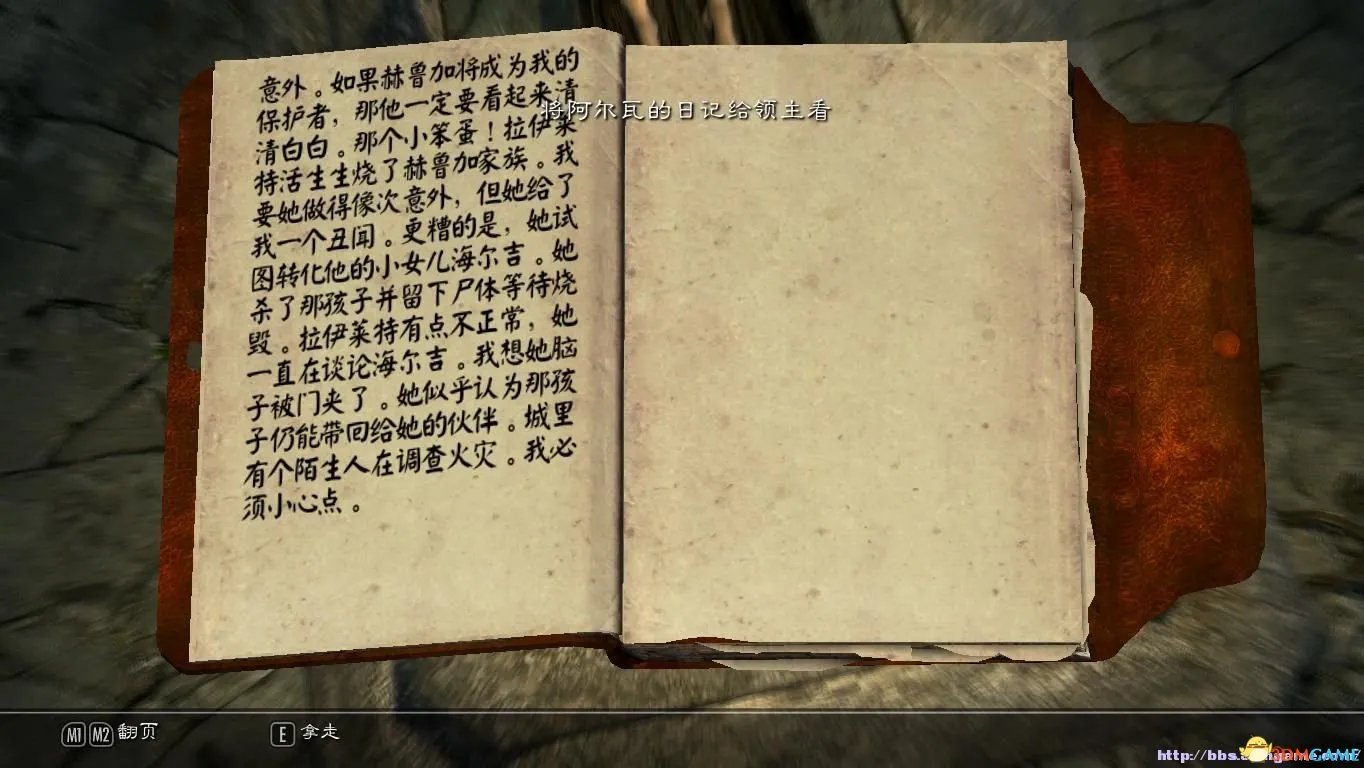 意外。如果赫鲁加将成为我的
保护者，那他一定要看起来清
清白白。那个小笨蛋！拉伊莱
特活生生烧了赫鲁加家族。我
要她做得像次意外，但她给了
我一个丑闻。更糟的是，她试
图转化他的小女儿海尔吉。她
杀了那孩子并留下尸体等待烧
毁。拉伊莱特有点不正常，她
一直在谈论海尔吉。我想她脑
子被门夹了。她似乎认为那孩
子仍能带回给她的伙伴。城里
有个陌生人在调查火灾。我必
须小心点。
将阿尔瓦的日记给领主看
M1 M2 翻页
E 拿走
3DMGAME